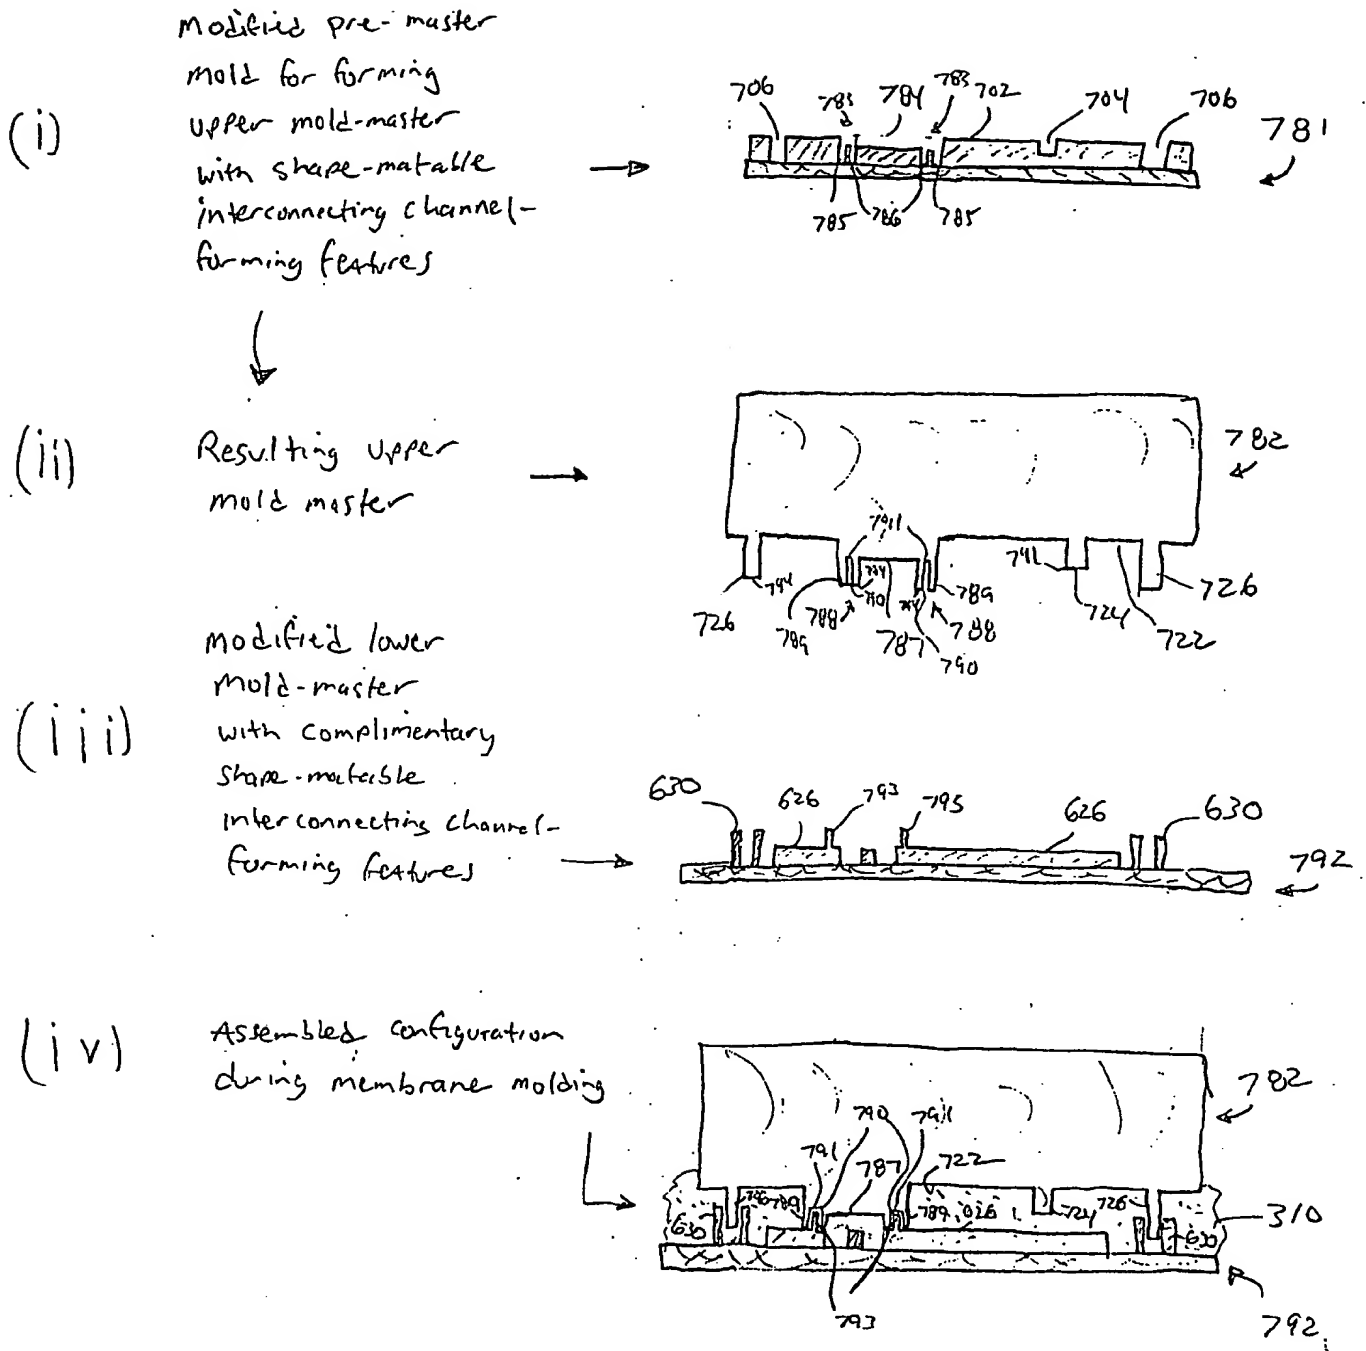 (i)
Modified pre-master
mold for forming
upper mold-master
with shape-matable
interconnecting channel-
forming features
706 783 784 783 702 704 706
781
785 786 785
(ii)
Resulting upper
mold master
782
791
794 794 794 741
726 789 788 790 787 790 788 789 724 722 726
(iii)
Modified lower
mold-master
with complimentary
shape-matable
interconnecting channel-
forming features
630 626 793 795 626 630
792
(iv)
Assembled configuration
during membrane molding
782
791 790 787 791 722
630 789 789 626 724 726 630 310
793
792